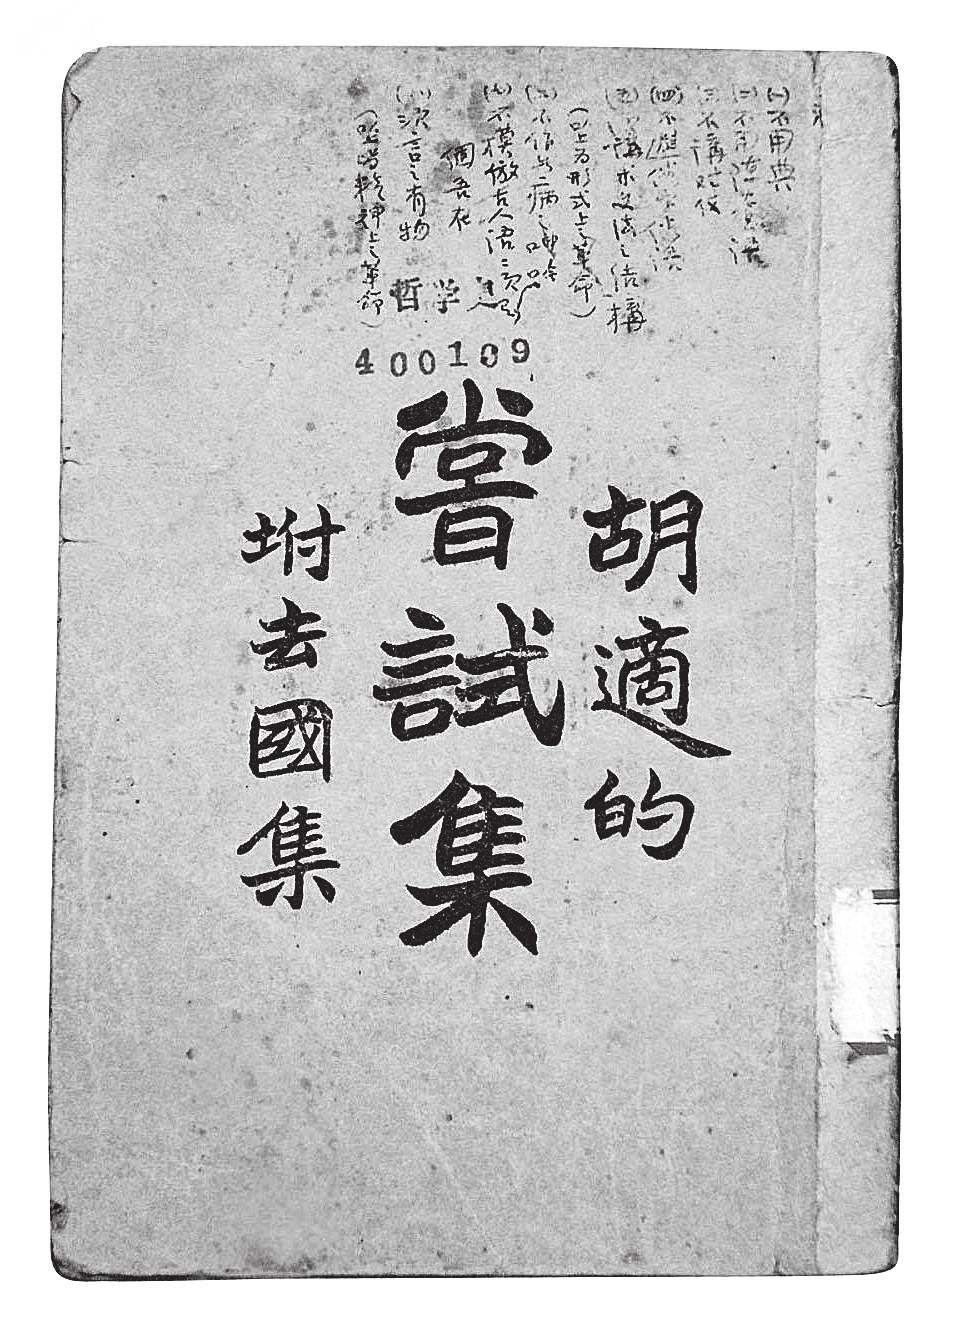 (一)不用典
(二)不用陳套語
(三)不講对仗
(四)不避俗字俗語
(五)須講求文法之结構
(以上为形式上之革命)
(六)不作無病之呻吟
(七)不模倣古人语语須
個吾在
(八)須言之有物
(此皆精神上之革命)
哲学
400109
胡適的
嘗試集
坿去國集